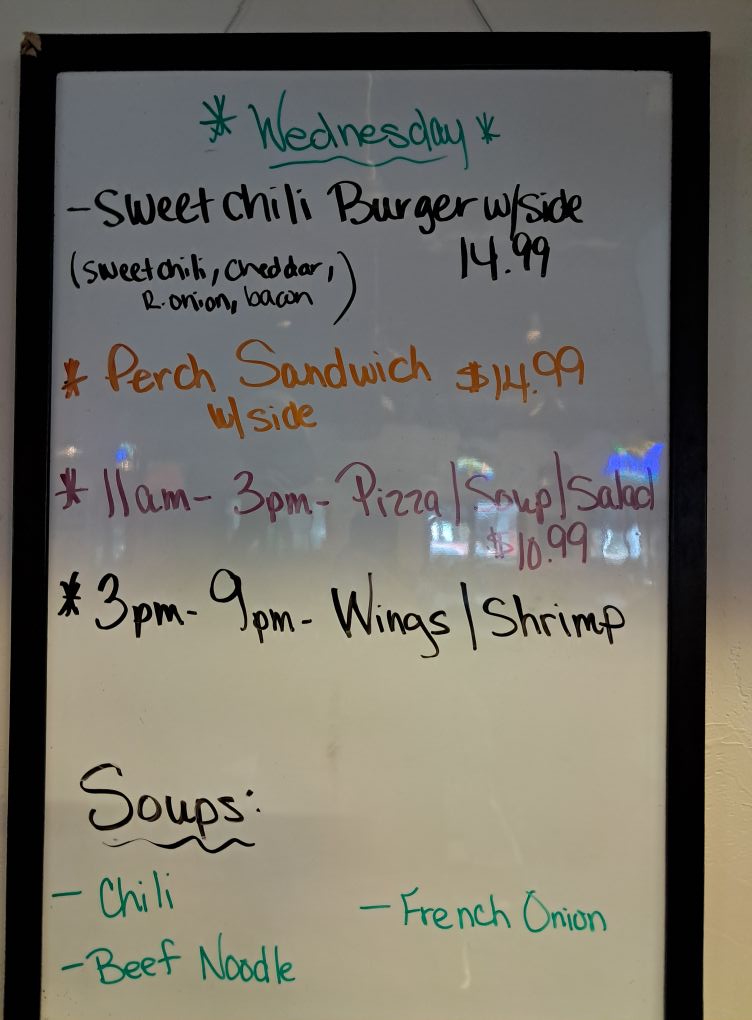 * Wednesday *
- Sweet chili Burger w/side
14.99
(sweet chili, cheddar,
R. onion, bacon)
* Perch Sandwich $14.99
w/side
* 11am - 3pm - Pizza/Soup/Salad
$10.99
* 3pm - 9pm - Wings/Shrimp
Soups:
- Chili
- French Onion
- Beef Noodle